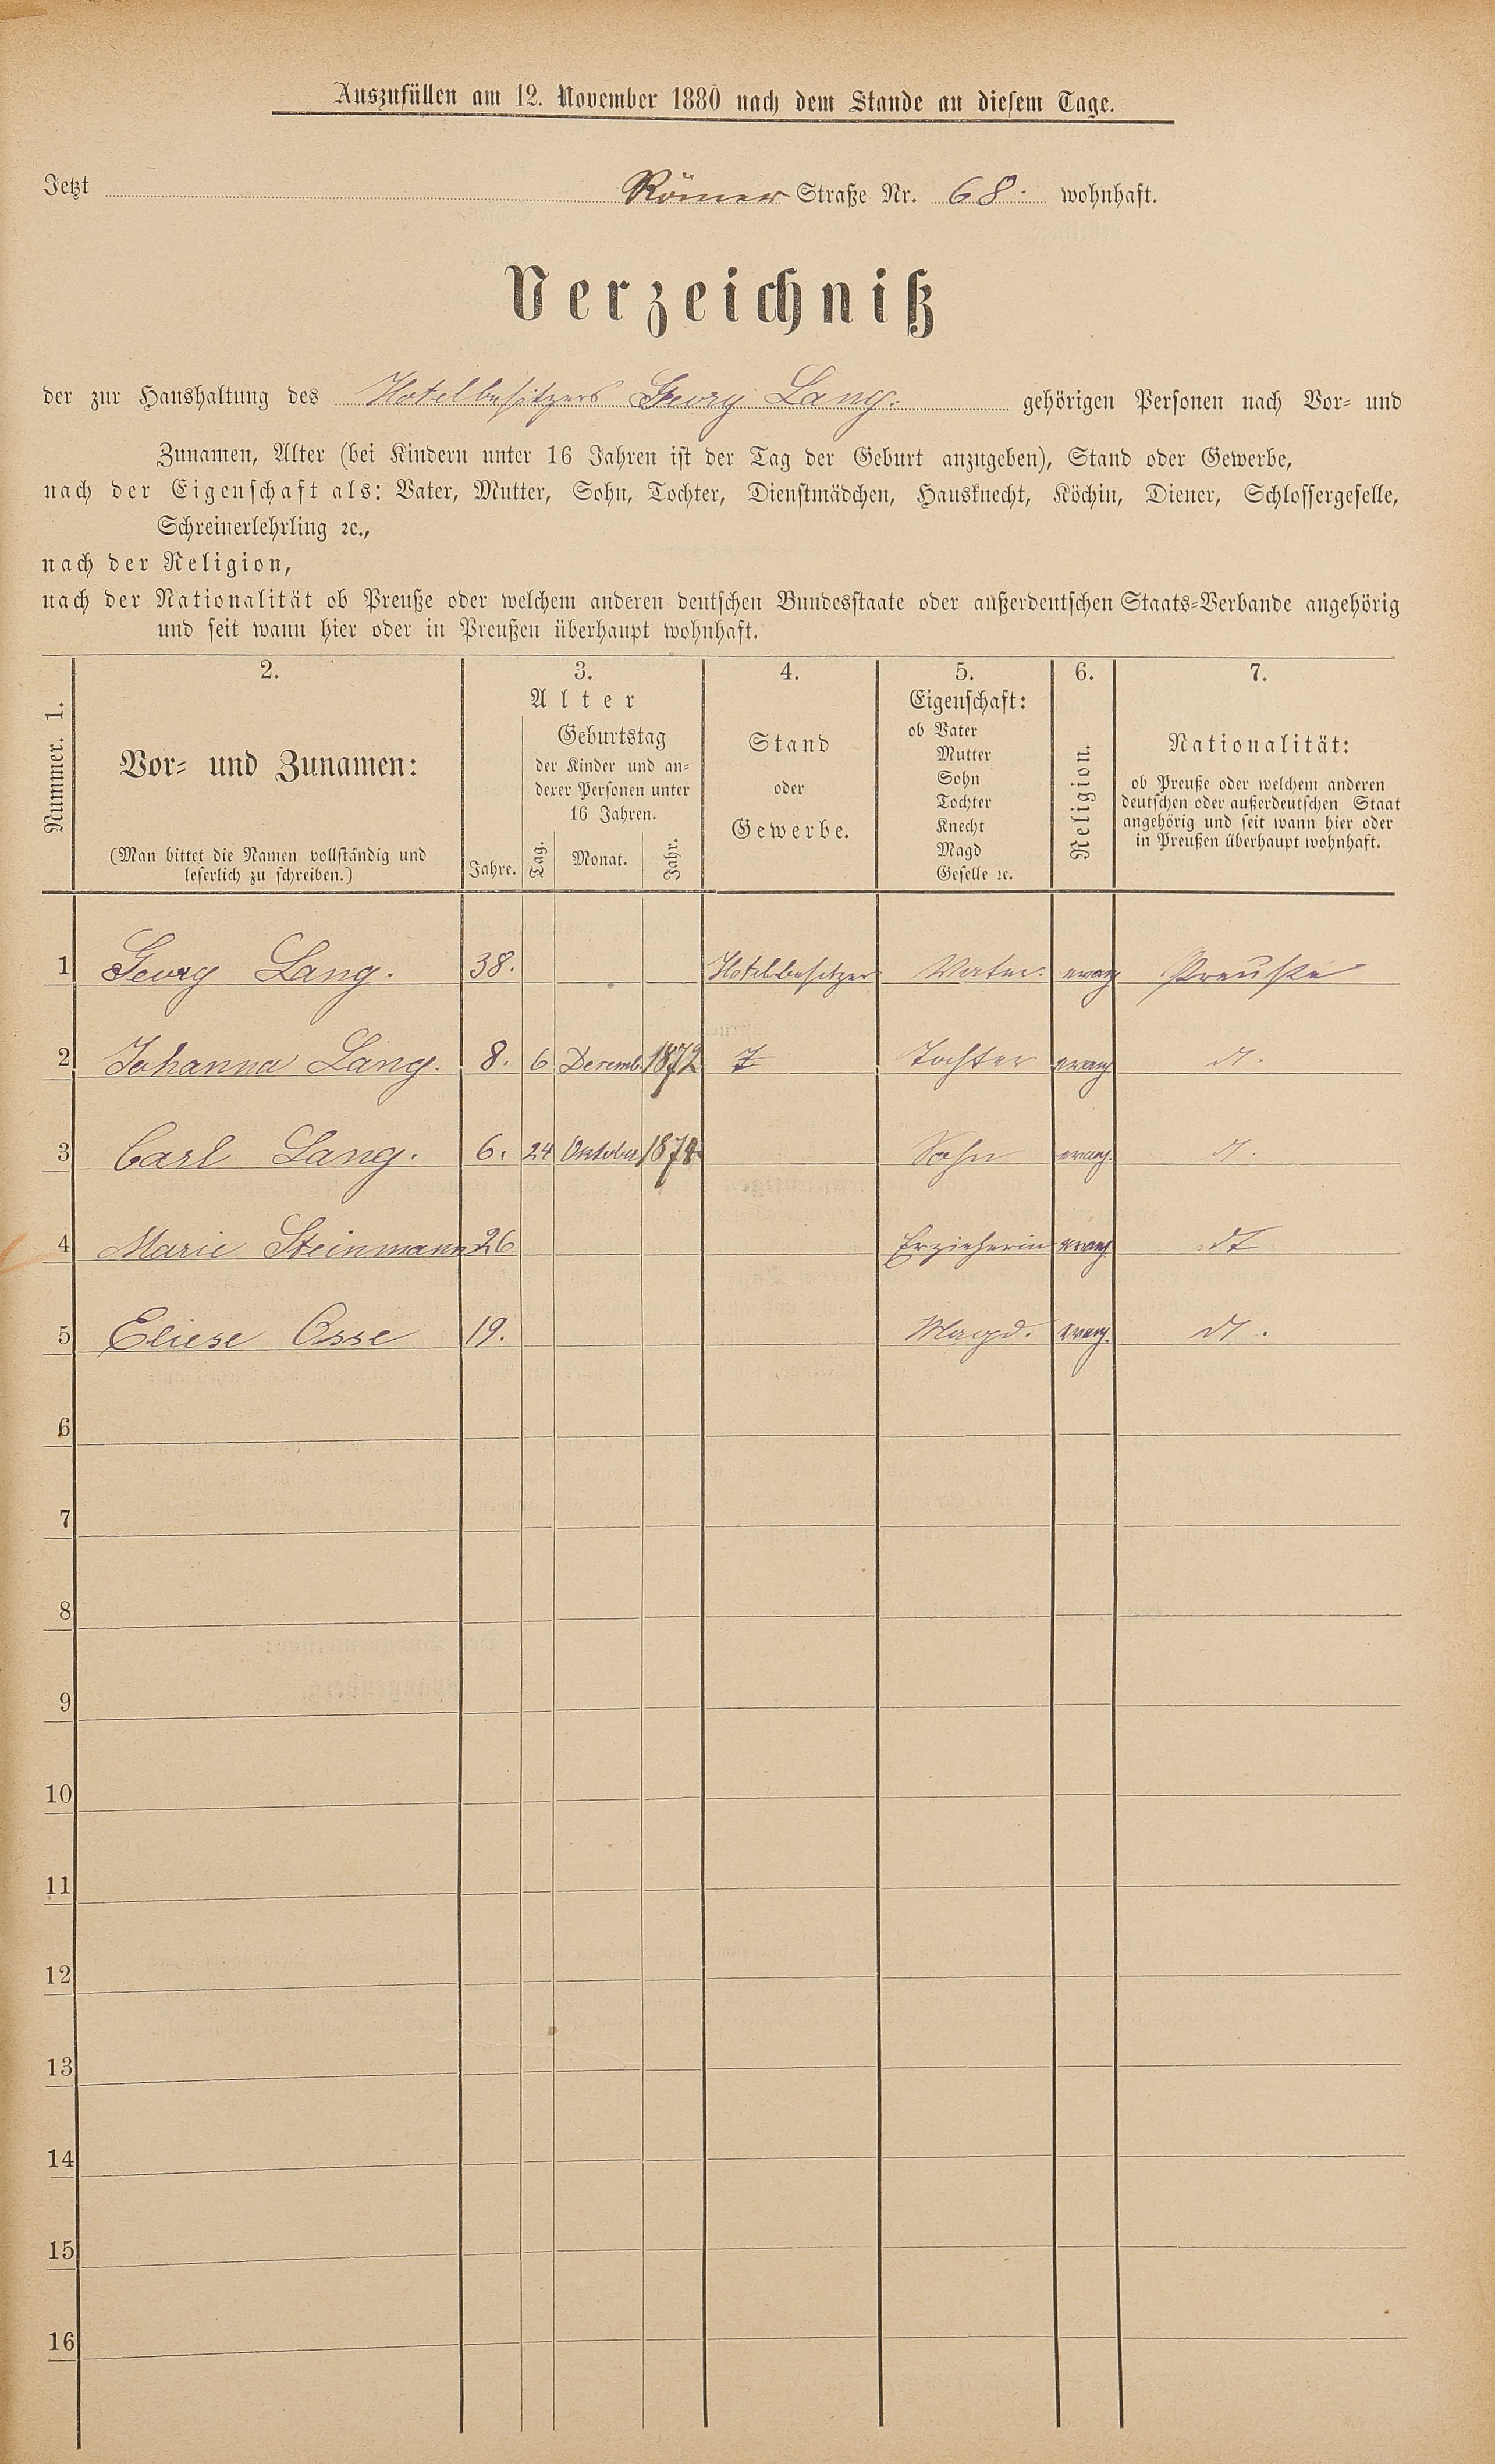 Auszufüllen am 12. November 1880 nach dem Stande an diesem Tage.
Jetzt Römer Straße Nr. 68. wohnhaft.
Verzeichniß
der zur Haushaltung des Hotelbesitzers Georg Lang. gehörigen Personen nach Vor- und
Zunamen, Alter (bei Kindern unter 16 Jahren ist der Tag der Geburt anzugeben), Stand oder Gewerbe,
nach der Eigenschaft als: Vater, Mutter, Sohn, Tochter, Dienstmädchen, Hausknecht, Köchin, Diener, Schlossergeselle,
Schreinerlehrling ꝛc.,
nach der Religion,
nach der Nationalität ob Preuße oder welchem anderen deutschen Bundesstaate oder außerdeutschen Staats-Verbande angehörig
und seit wann hier oder in Preußen überhaupt wohnhaft.
Nummer. 1.
2.
Vor- und Zunamen:
(Man bittet die Namen vollständig und
leserlich zu schreiben.)
3.
Alter
Jahre.
Geburtstag
der Kinder und an-
derer Personen unter
16 Jahren.
Tag. Monat. Jahr.
4.
Stand
oder
Gewerbe.
5.
Eigenschaft:
ob Vater
Mutter
Sohn
Tochter
Knecht
Magd
Geselle ꝛc.
6.
Religion.
7.
Nationalität:
ob Preuße oder welchem anderen
deutschen oder außerdeutschen Staat
angehörig und seit wann hier oder
in Preußen überhaupt wohnhaft.
1 Georg Lang. 38. Hotelbesitzer Vater. evang Preuße
2 Johanna Lang. 8. 6 Decemb. 1872 Tochter evang
3 Carl Lang. 6. 24 Oktober 1874 Sohn evang.
4 Marie Steinmann 26 Erzieherin evang. dt
5 Eliese Osse 19. Magd. evang.
6
7
8
9
10
11
12
13
14
15
16